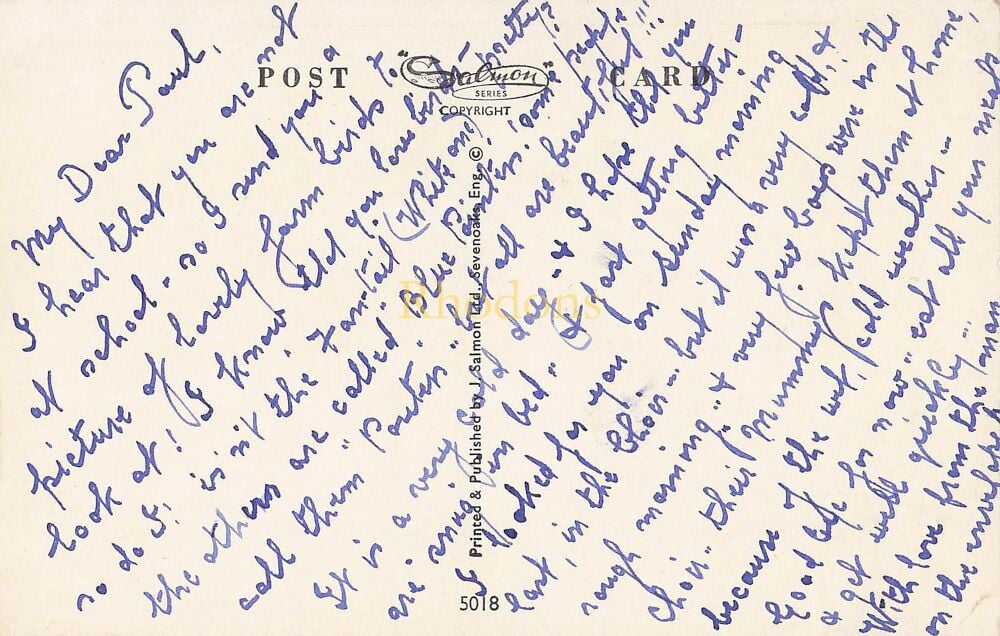 POST CARD
"Salmon
SERIES
COPYRIGHT
My Dear Paul,
I hear that you are not
at school - so I send you a
picture of lovely farm birds to
look at! I know that you love birds
so do I! isn't the Fantail (White one) pretty?
the others are called "blue Porters", some people
call them "Porters" - all are beautiful!!
It is a very cold day - & I hope that you
are snug in bed" (& fast getting better -
I looked for you on Sunday morning
last, in the Choir - but it was a very cold, &
rough morning" & very few boys were in the
Choir - their Mummys kept them at home,
because of the wet, cold weather -
Good bye for now" eat all your meals
& get well quickly" -
With love from the "man
on the
Printed & Published by J. Salmon Ltd., Sevenoaks, Eng. ©
5018
Rhodons